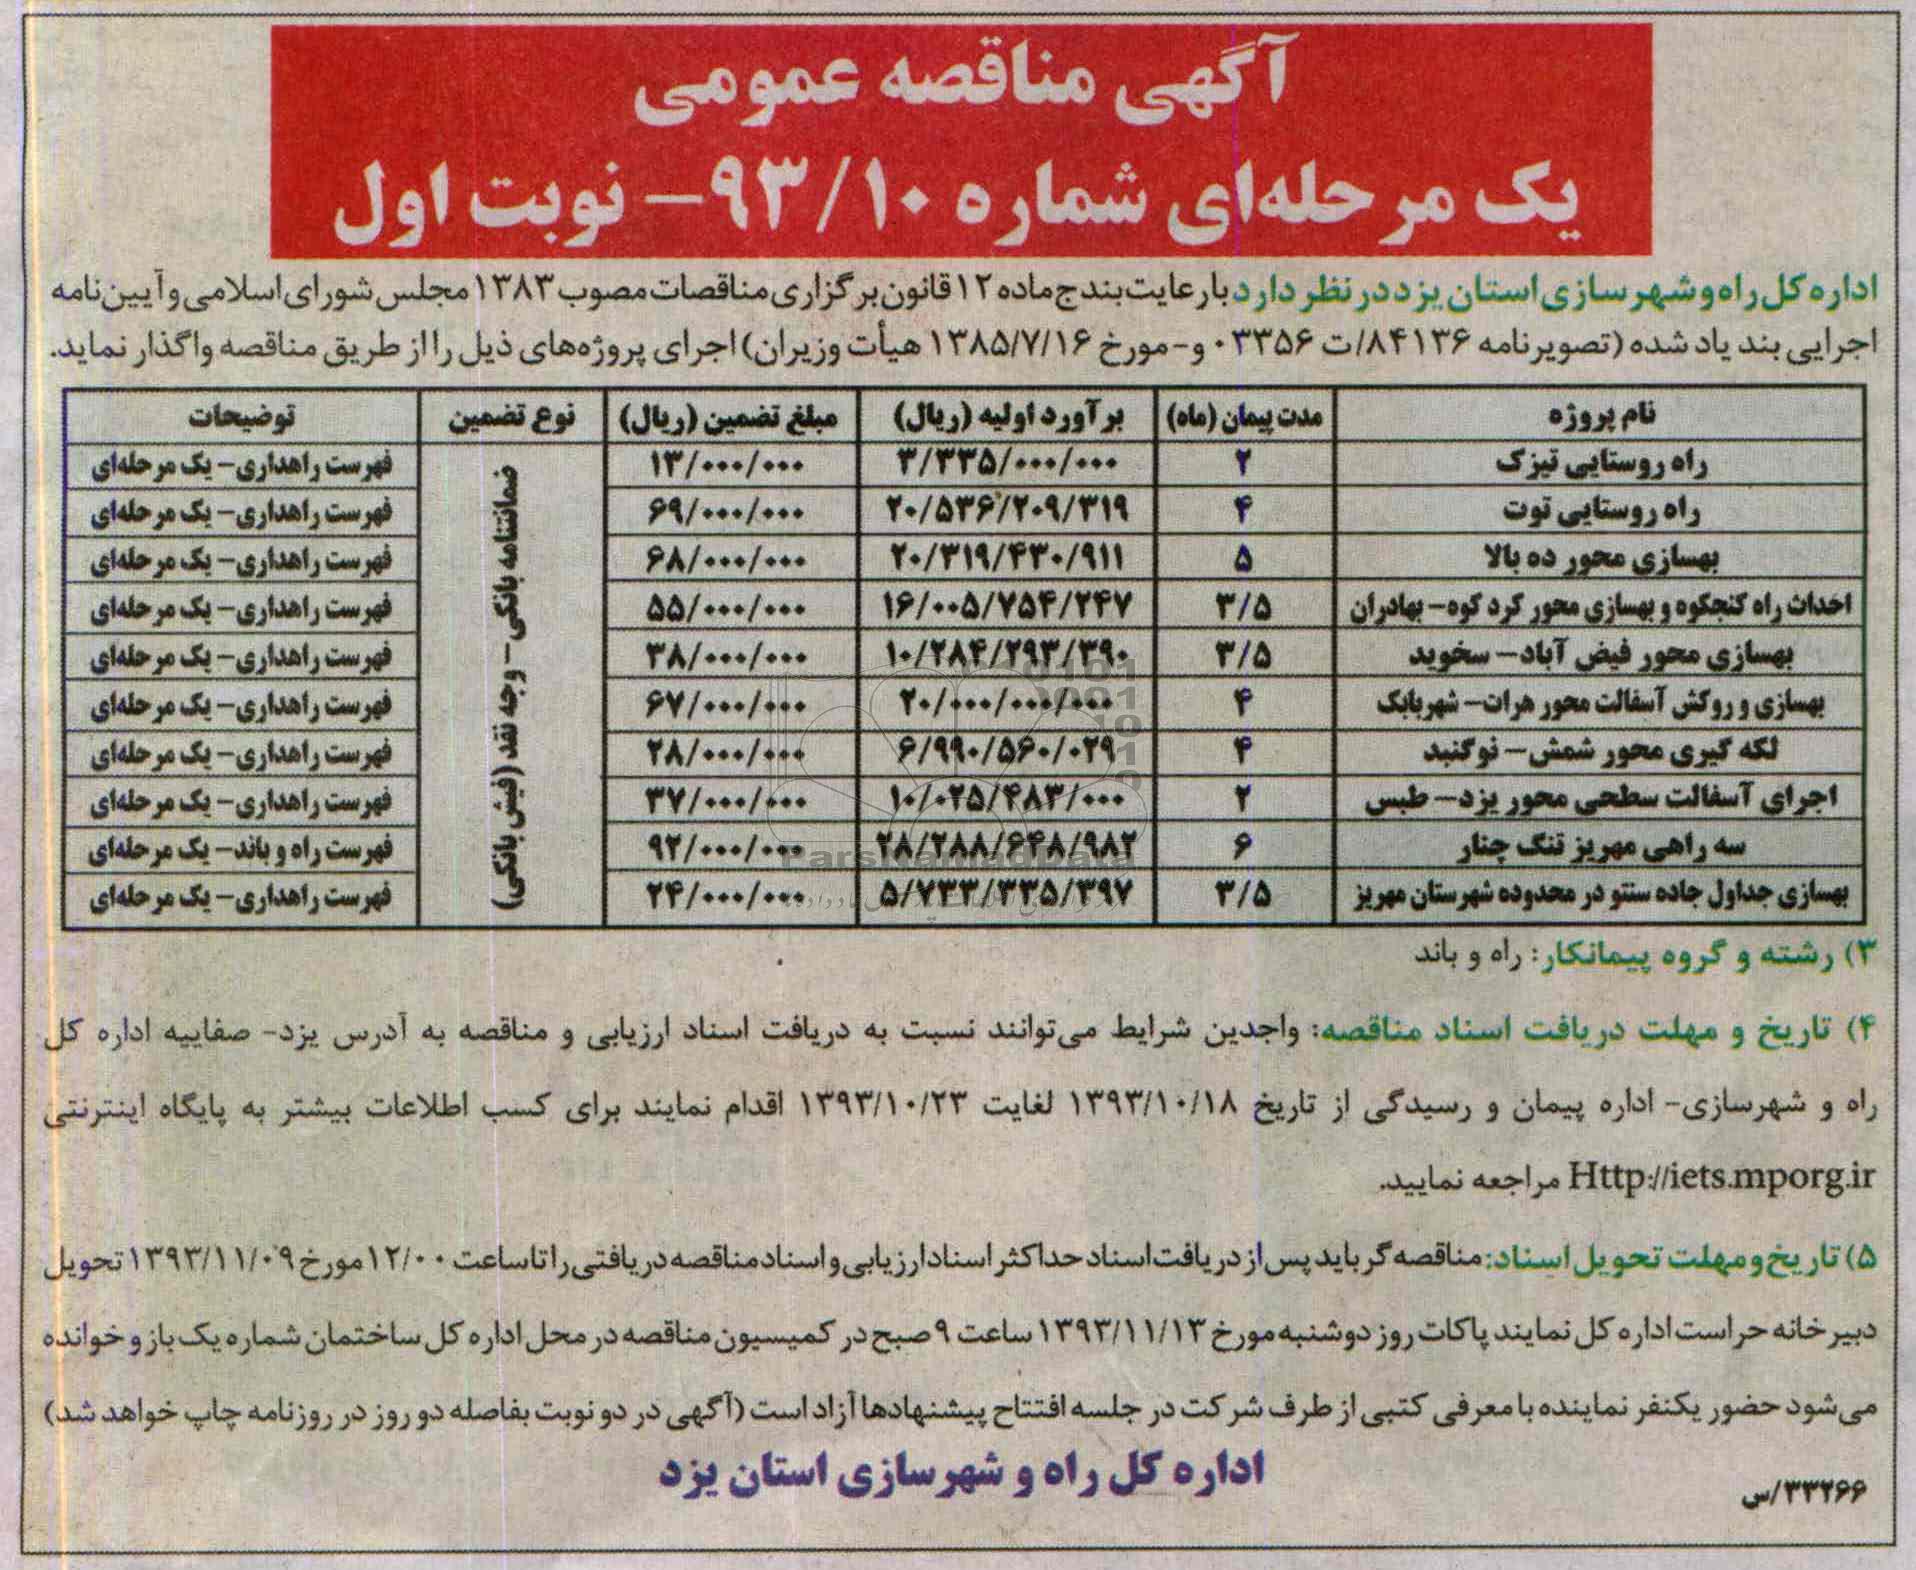 آگهی مناقصه عمومی
یک مرحله‌ای شماره ۹۳/۱۰- نوبت اول
اداره کل راه و شهرسازی استان یزد در نظر دارد با رعایت بند ج ماده ۱۲ قانون برگزاری مناقصات مصوب ۱۳۸۳ مجلس شورای اسلامی و آیین‌نامه
اجرایی بند یاد شده (تصویرنامه ۸۴۱۳۶/ت ۰۳۳۵۶ و-مورخ ۱۳۸۵/۷/۱۶ هیأت وزیران) اجرای پروژه‌های ذیل را از طریق مناقصه واگذار نماید.
نام پروژه مدت پیمان (ماه) برآورد اولیه (ریال) مبلغ تضمین (ریال) نوع تضمین توضیحات
راه روستایی تیزک ۲ ۳/۳۳۵/۰۰۰/۰۰۰ ۱۳/۰۰۰/۰۰۰ فهرست راهداری- یک مرحله‌ای
راه روستایی توت ۴ ۲۰/۵۳۶/۲۰۹/۳۱۹ ۶۹/۰۰۰/۰۰۰ فهرست راهداری- یک مرحله‌ای
بهسازی محور ده بالا ۵ ۲۰/۳۱۹/۴۳۰/۹۱۱ ۶۸/۰۰۰/۰۰۰ فهرست راهداری- یک مرحله‌ای
احداث راه کنجکوه و بهسازی محور کرد کوه- بهادران ۳/۵ ۱۶/۰۰۵/۷۵۴/۲۴۷ ۵۵/۰۰۰/۰۰۰ فهرست راهداری- یک مرحله‌ای
بهسازی محور فیض آباد- سخوید ۳/۵ ۱۰/۲۸۴/۲۹۳/۳۹۰ ۳۸/۰۰۰/۰۰۰ فهرست راهداری- یک مرحله‌ای
بهسازی و روکش آسفالت محور هرات- شهربابک ۴ ۲۰/۰۰۰/۰۰۰/۰۰۰ ۶۷/۰۰۰/۰۰۰ فهرست راهداری- یک مرحله‌ای
لکه گیری محور شمش- نوگنبد ۴ ۶/۹۹۰/۵۶۰/۰۲۹ ۲۸/۰۰۰/۰۰۰ فهرست راهداری- یک مرحله‌ای
اجرای آسفالت سطحی محور یزد- طبس ۲ ۱۰/۰۲۵/۴۸۳/۰۰۰ ۳۷/۰۰۰/۰۰۰ فهرست راهداری- یک مرحله‌ای
سه راهی مهریز تنگ چنار ۶ ۲۸/۲۸۸/۶۴۸/۹۸۲ ۹۲/۰۰۰/۰۰۰ فهرست راه و باند- یک مرحله‌ای
بهسازی جداول جاده سنتو در محدوده شهرستان مهریز ۳/۵ ۵/۷۳۳/۳۳۵/۳۹۷ ۲۴/۰۰۰/۰۰۰ فهرست راهداری- یک مرحله‌ای
ضمانتنامه بانکی- وجه نقد (فیش بانکی)
ParsNamadData
۳) رشته و گروه پیمانکار: راه و باند
۴) تاریخ و مهلت دریافت اسناد مناقصه: واجدین شرایط می‌توانند نسبت به دریافت اسناد ارزیابی و مناقصه به آدرس یزد- صفاییه اداره کل
راه و شهرسازی- اداره پیمان و رسیدگی از تاریخ ۱۳۹۳/۱۰/۱۸ لغایت ۱۳۹۳/۱۰/۲۳ اقدام نمایند برای کسب اطلاعات بیشتر به پایگاه اینترنتی
Http://iets.mporg.ir مراجعه نمایید.
۵) تاریخ و مهلت تحویل اسناد: مناقصه‌گر باید پس از دریافت اسناد حداکثر اسناد ارزیابی و اسناد مناقصه دریافتی را تا ساعت ۱۲/۰۰ مورخ ۱۳۹۳/۱۱/۰۹ تحویل
دبیرخانه حراست اداره کل نمایند پاکات روز دوشنبه مورخ ۱۳۹۳/۱۱/۱۳ ساعت ۹ صبح در کمیسیون مناقصه در محل اداره کل ساختمان شماره یک باز و خوانده
می‌شود حضور یکنفر نماینده با معرفی کتبی از طرف شرکت در جلسه افتتاح پیشنهادها آزاد است (آگهی در دو نوبت بفاصله دو روز در روزنامه چاپ خواهد شد)
اداره کل راه و شهرسازی استان یزد
۳۳۲۶۶/س